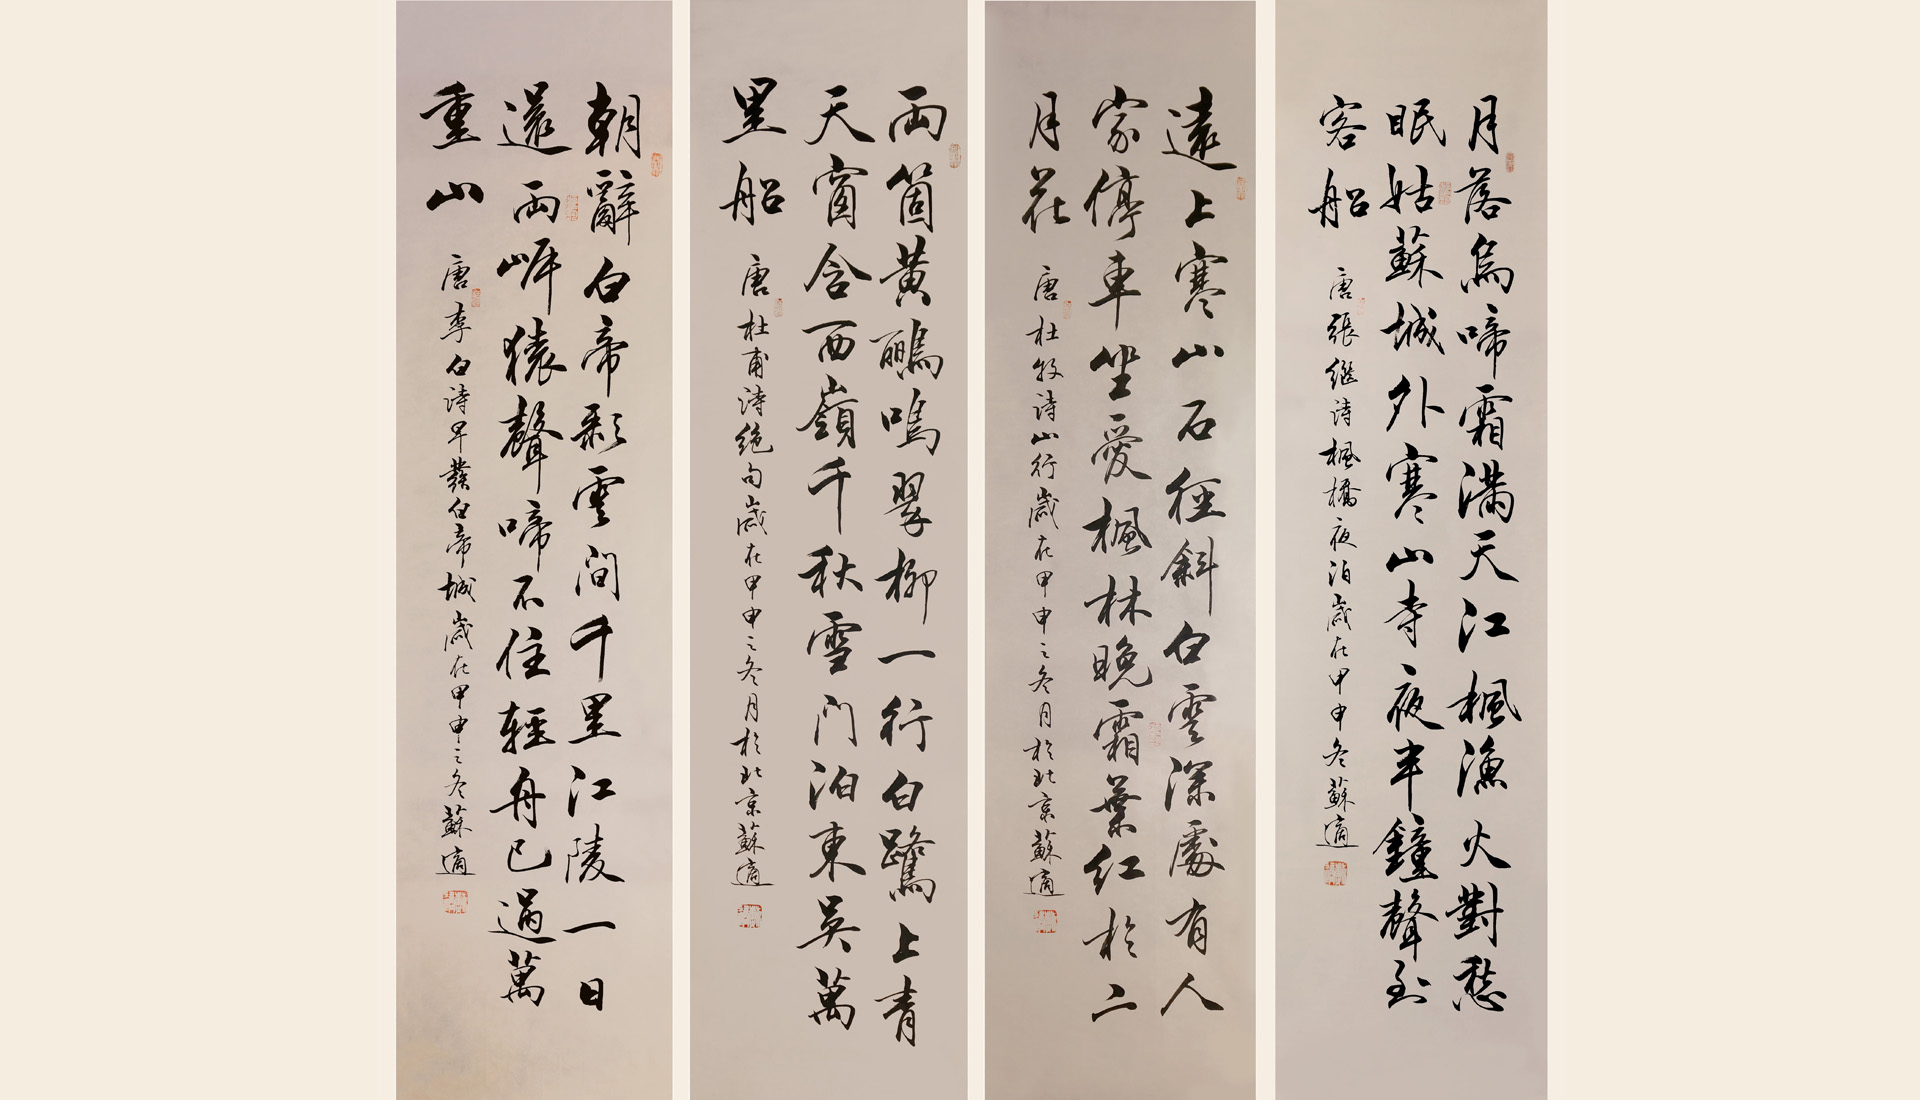 月落烏啼霜滿天江楓漁火對愁
眠姑蘇城外寒山寺夜半鐘聲到
客船
唐張繼詩楓橋夜泊歲在甲申冬蘇適
遠上寒山石徑斜白雲深處有人
家停車坐愛楓林晚霜葉紅於二
月花
唐杜牧詩山行歲在甲申之冬月於北京蘇適
兩箇黃鸝鳴翠柳一行白鷺上青
天窗含西嶺千秋雪門泊東吳萬
里船
唐杜甫詩絕句歲在甲申之冬月於北京蘇適
朝辭白帝彩雲間千里江陵一日
還兩岸猿聲啼不住輕舟已過萬
重山
唐李白詩早發白帝城歲在甲申之冬蘇適